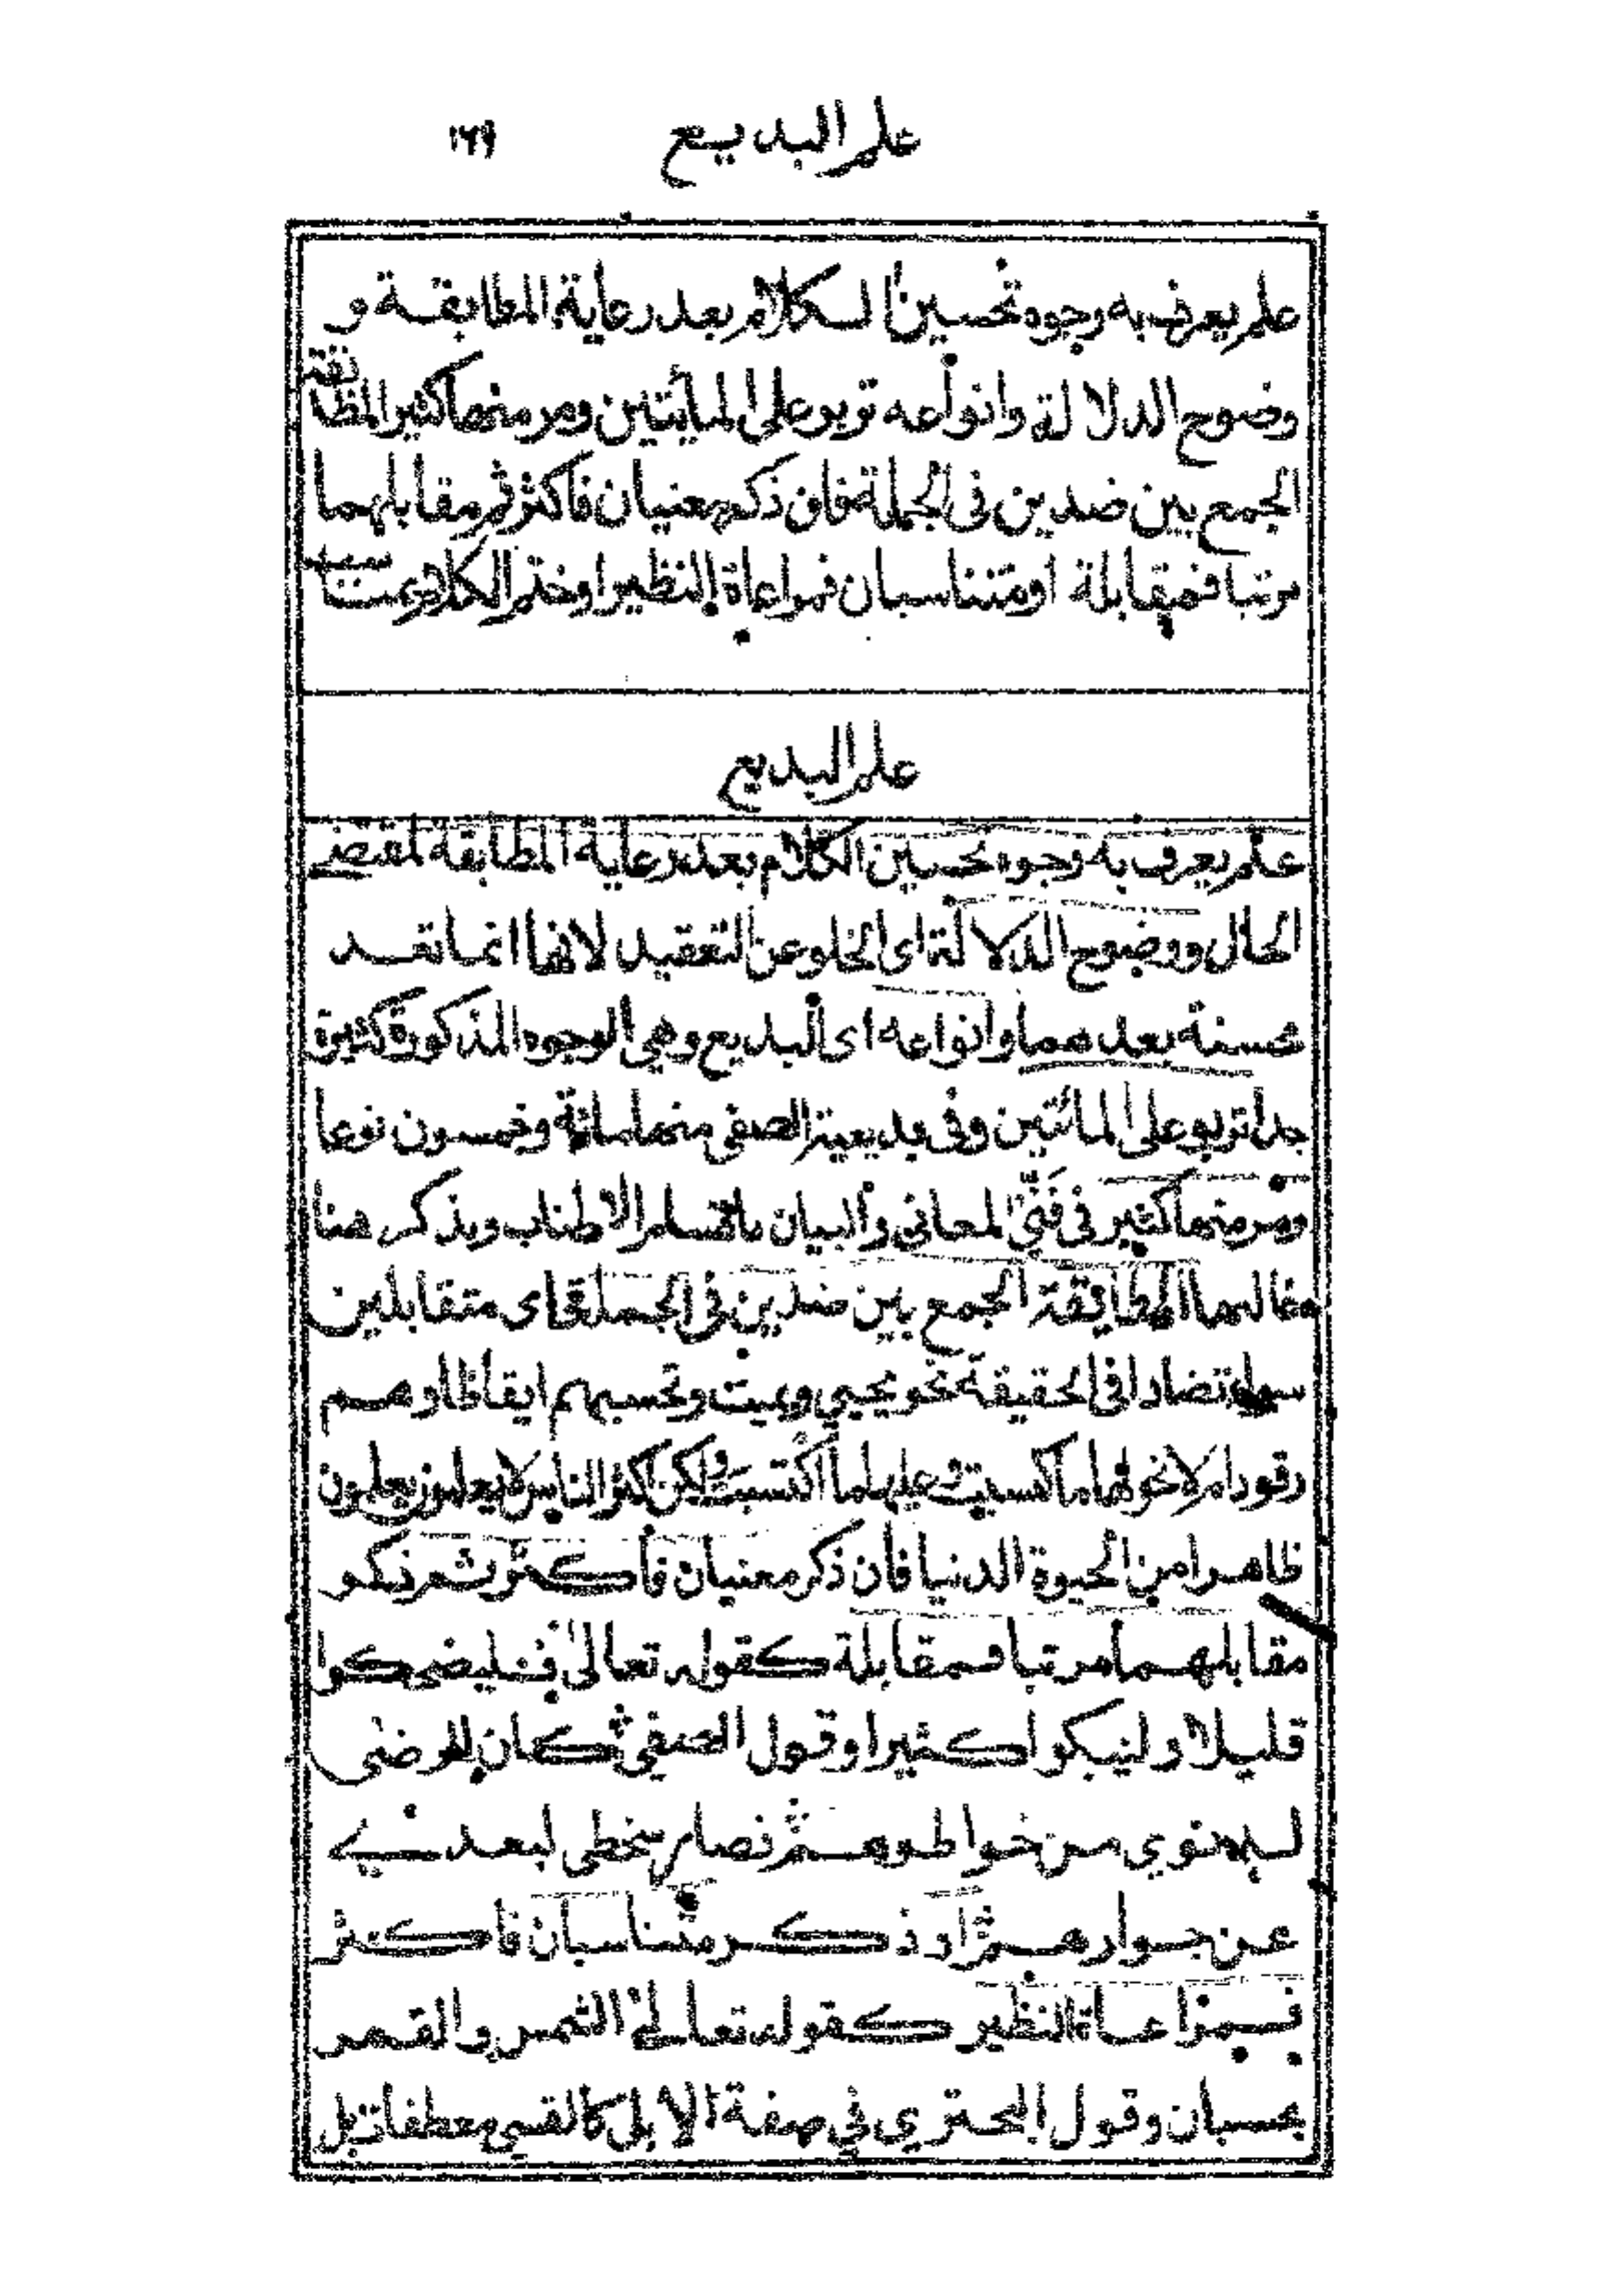 علم البديع ١٦٩
علم يعرف به وجوه تحسين الكلام بعد رعاية المطابقة و
وضوح الدلالة وانواعه تربو على المأيتين ومر منها كثير المطابقة
الجمع بين ضدين فى الجملة فان ذكر معنيان فاكثر ثم مقابلهما
مرتبا فمقابلة او متناسبان فمراعاة النظير او ختم الكلام بمناسب
علم البديع
علم يعرف به وجوه تحسين الكلام بعد رعاية المطابقة لمقتضے
الحال ووضوح الدلالة اى الخلو عن التعقيد لانها انما تعد
محسنة بعدهما وانواعه اى البديع وهى الوجوه المذكورة كثيرة
جدا تربو على المائتين وفى بديعية الصفى منها مائة وخمسون نوعا
ومر منها كثير فى فَنَّىْ المعانى والبيان باقسام الاطناب ويذكر هنا
غالبها المطابقة الجمع بين ضدين فى الجملة اى متقابلين
سواء تضادا فى الحقيقة نحو يحيي ويميت وتحسبهم ايقاظا وهم
رقود ام لا نحو لها ما كسبت وعليها ما اكتسبت ولكن اكثر الناس لا يعلمون يعلمون
ظاهرا من الحيوة الدنيا فان ذكر معنيان فاكثر ثم ذكر
مقابلهما مرتبا فمقابلة كقوله تعالى فليضحكوا
قليلا وليبكوا كثيرا وقول الصفي كان الرضى
لدنوي من خواطرهم فصار سخطى لبعدے
عن جوارهم او ذكر متناسبان فاكثر
فمراعاة النظير كقوله تعالى الشمس والقمر
بحسبان وقول البحتري في صفة الابل كالقسي معطفات بل